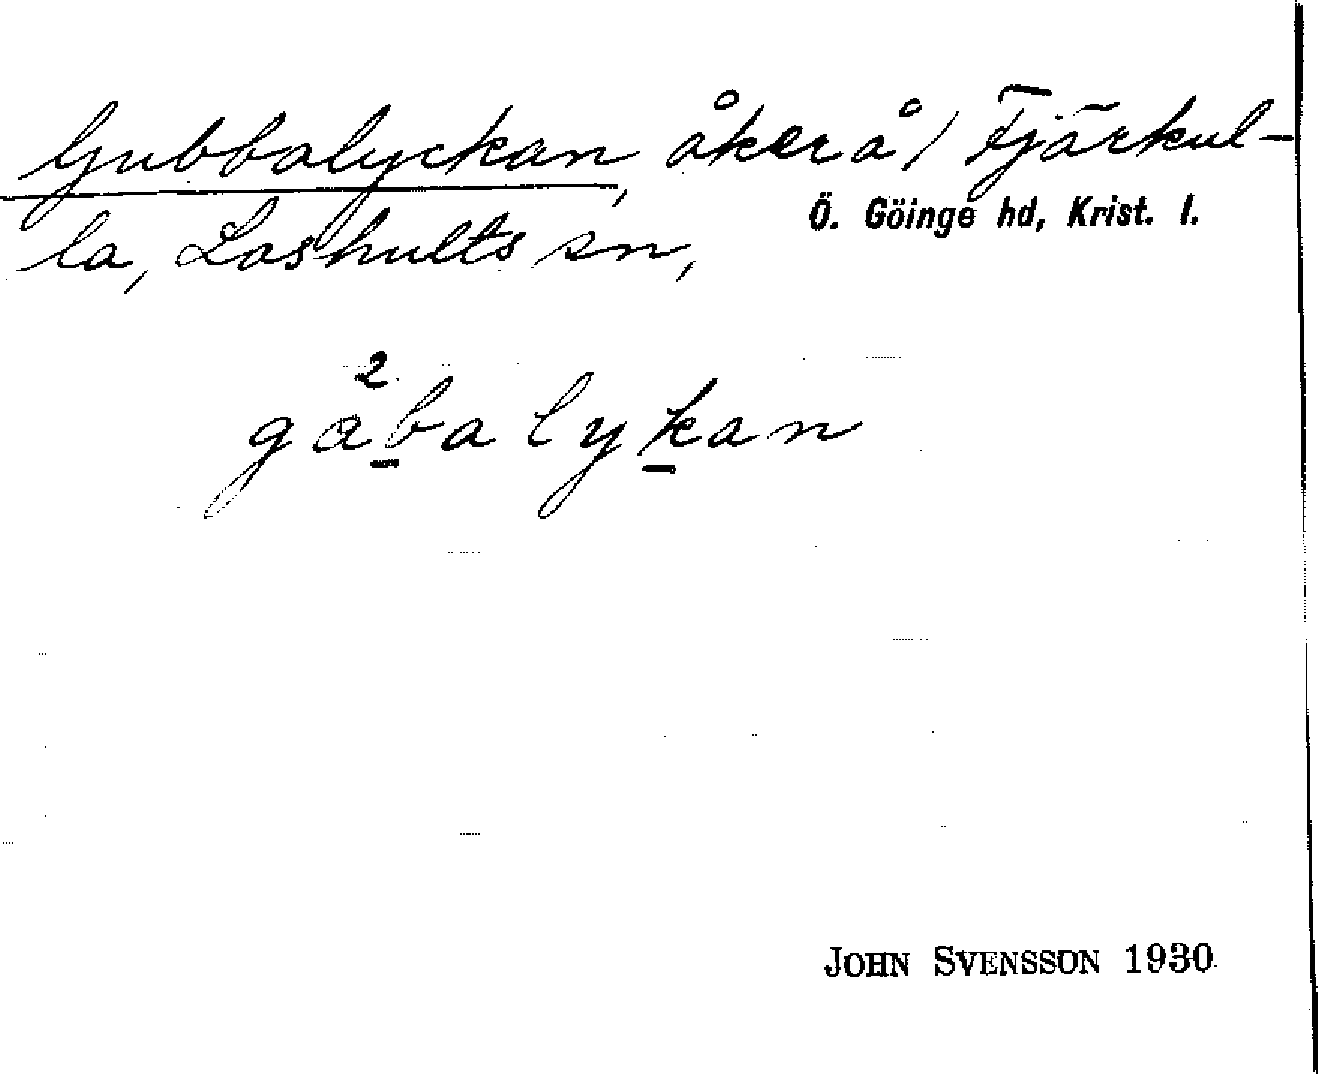 Gubbalyckan, åker å / Fjärkul-
la, Loshults sn,
Ö. Göinge hd, Krist. l.
2
gabalykan
JOHN SVENSSON 1930